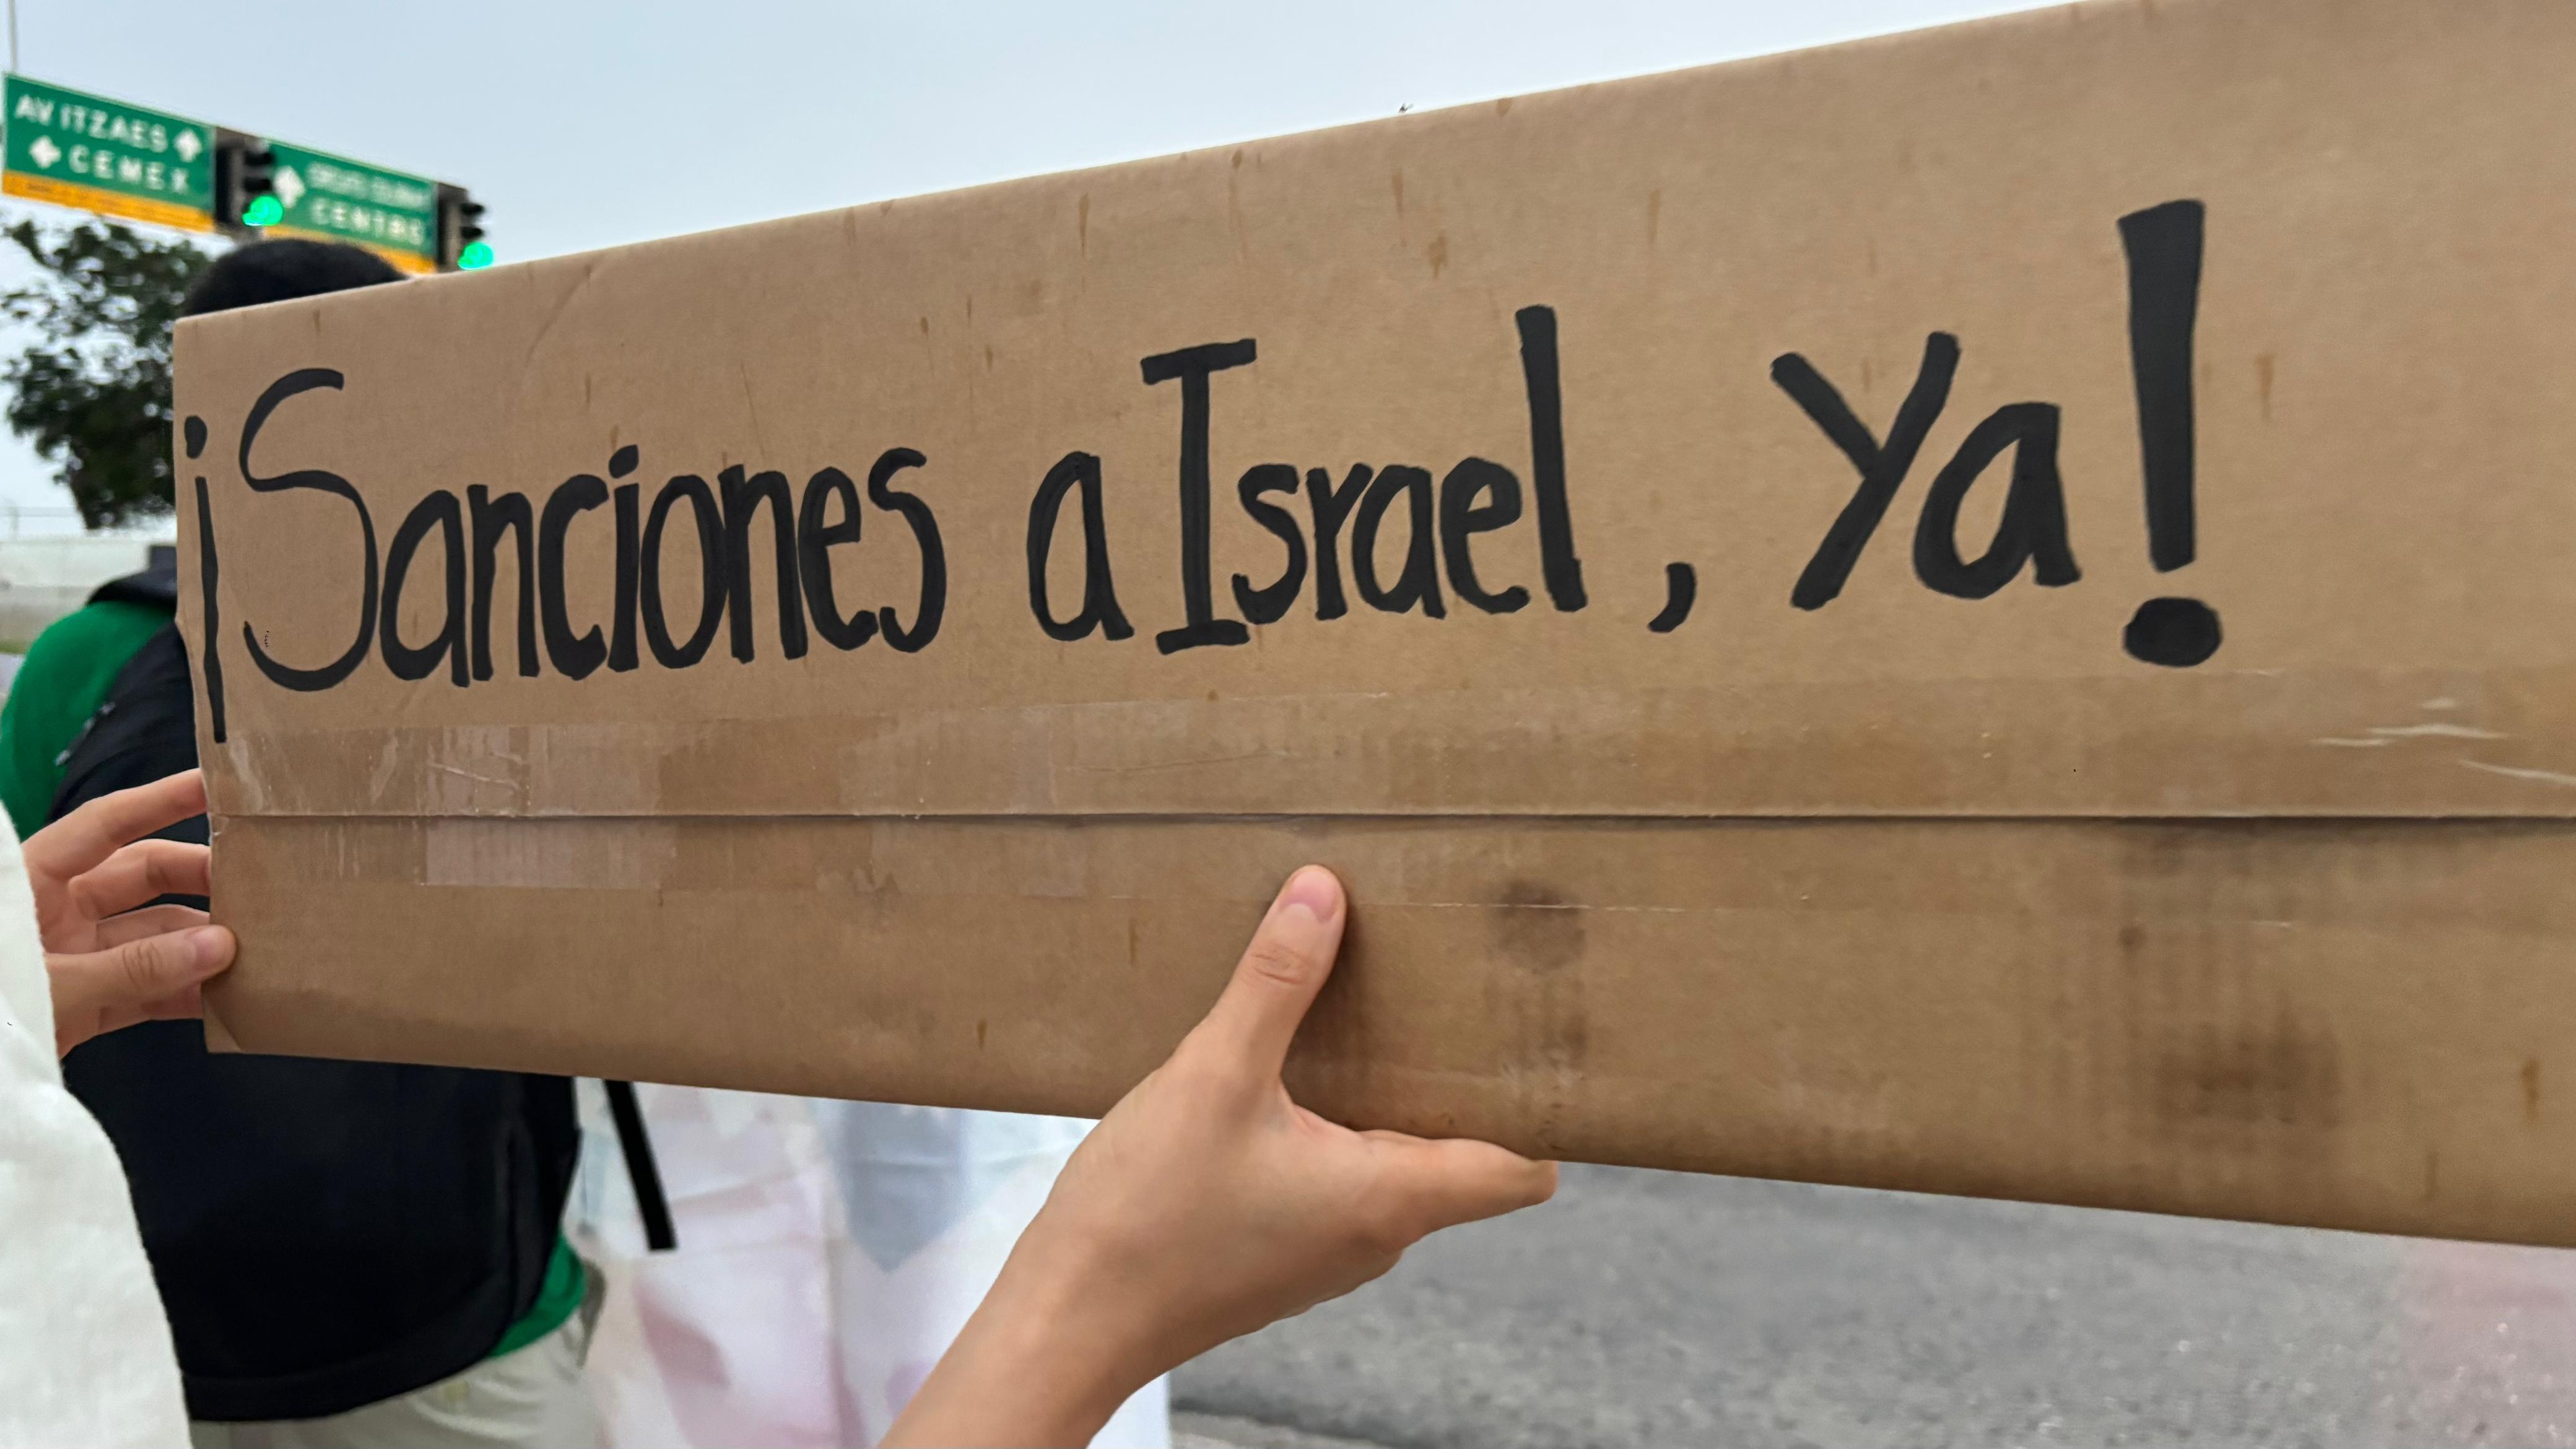 AV ITZAES
CEMEX
CENTRO
¡Sanciones a Israel, Ya!